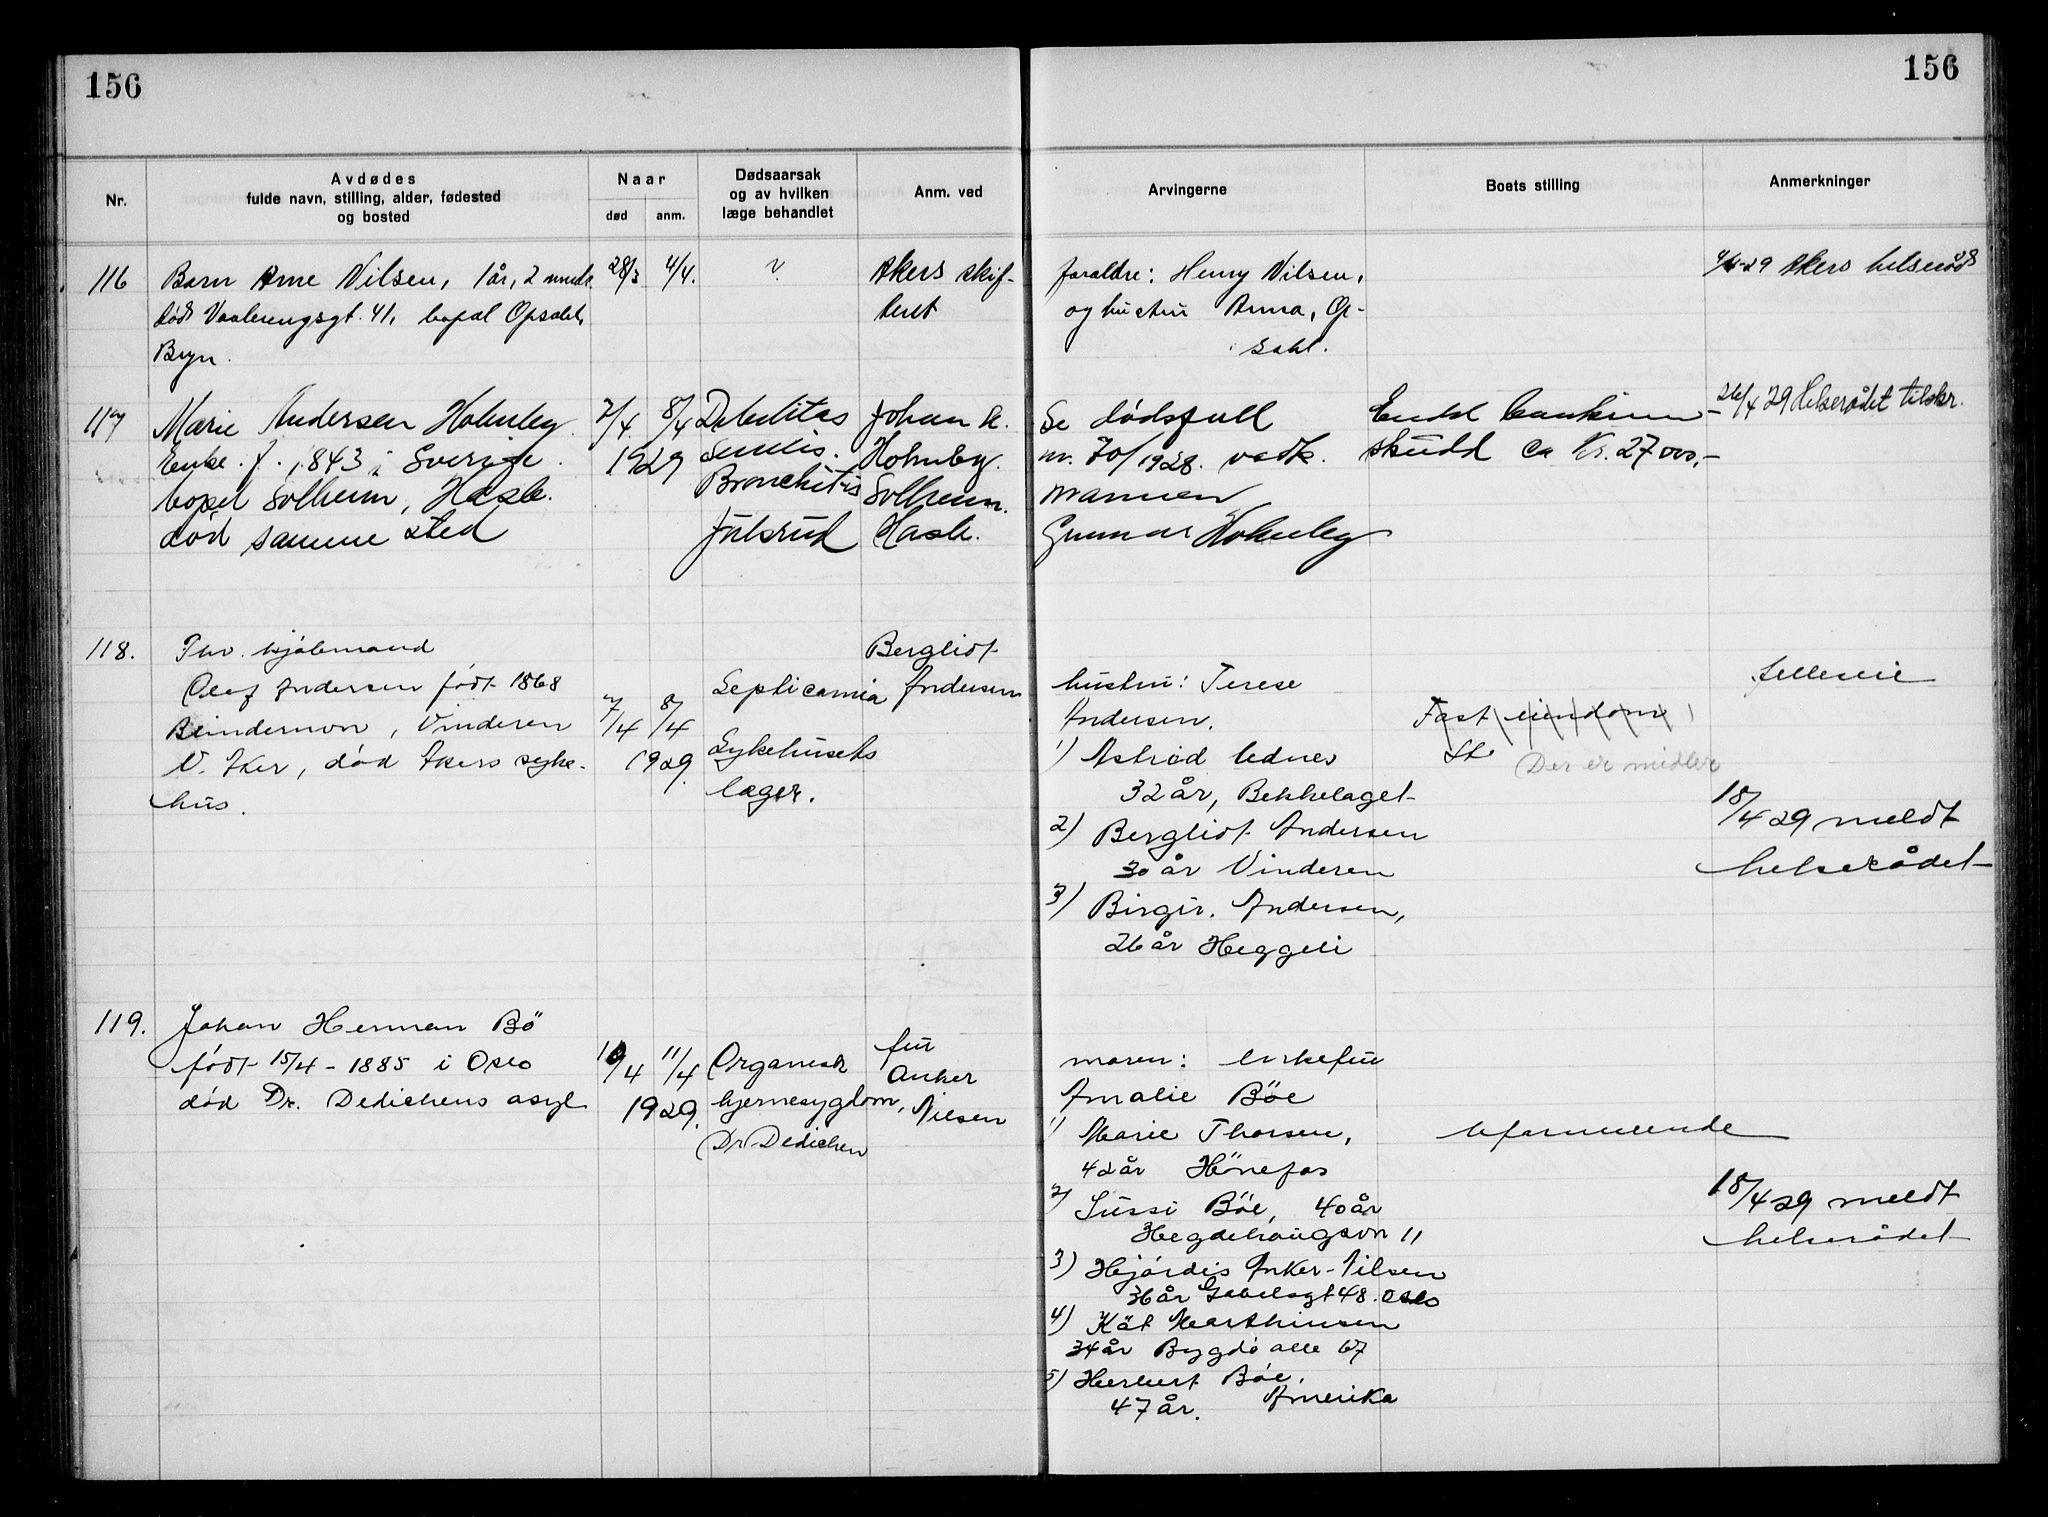 156
156
Nr.
Avdødes
fulde navn, stilling, alder, fødested
og bosted
Naar
død
anm.
Dødsaarsak
og av hvilken
læge behandlet
Anm. ved
Arvingerne
Boets stilling
Anmerkninger
116
Barn Arne Nilsen, 1 år, 2 mnedr.
død Vaalerengsgt. 41, bopæl Opsahl,
Bryn.
28/3
4/4.
?
Akers skif-
teret
foraldre: Henry Nilsen,
og hustru Anna, Op-
sahl.
4/4-29 Akers helseråd
117
Marie Andersen Holmbey
Enke. f. 1843 i Sverige.
bopel Solheim, Hasle.
død samme sted
7/4
8/4
1929
Debilitas
senilis.
Bronchitis
Julsrud
Johan A.
Holmbey.
Solheim.
Hasle.
Se dødsfall
nr. 70/1928. vedk.
mannen
Gunnar Holmbey
Endel bankinn-
skudd ca Kr. 27000,-
26/4 29 Helserådet tilskr.
118.
Thv. hjólemand
Olaf Andersen født 1868
Blindernvn, Vinderen
V. Aker, død Akers syke-
hus.
7/4
8/4
1929.
Septicamia
Sykehusets
læger.
Bergliot
Andersen
hustru: Terese
Andersen.
1) Astrid Ednes
32 år, Bekkelaget
2) Bergliot Andersen
30 år Vinderen
3) Birgir. Andersen,
26 år Heggeli
Fast eiendom
Der er midler
felleseie
18/4 29 meldt
helserådet
119.
Johan Herman Bö
født 15/4 - 1885 i Oslo
død Dr. Dedichens asyl
10/4
11/4
1929.
Organisk
hjernesygdom,
Dr Dedichen
fru
Anker
Nilsen
moren: enkefru
Amalie Böe
1) Marie Thorsen,
42 år Hönefos
2) Sussi Böe, 40 år
Hegdehaugsvn 11
3) Hjördis Anker-Nilsen
36 år Gabelsgt 48. Oslo
4) Kät Marthinsen
34 år Bygdø alle 67
5) Herbert Böe,
47 år. Amerika
Uformuende
18/4 29 meldt
helserådet